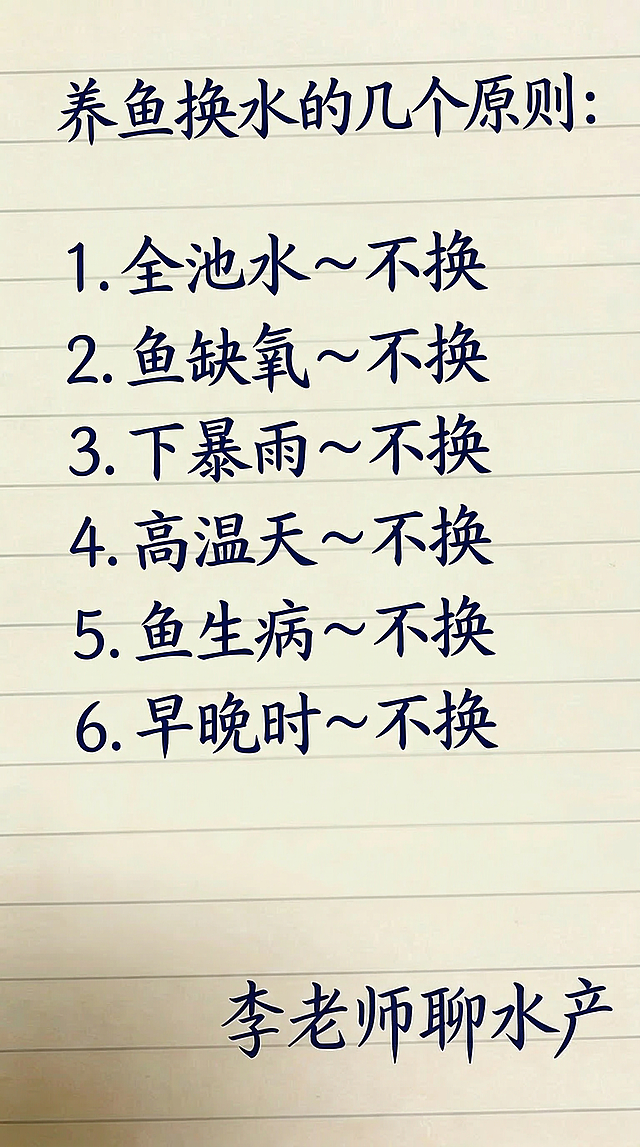 养鱼换水的几个原则:
1. 全池水~不换
2. 鱼缺氧~不换
3. 下暴雨~不换
4. 高温天~不换
5. 鱼生病~不换
6. 早晚时~不换
李老师聊水产